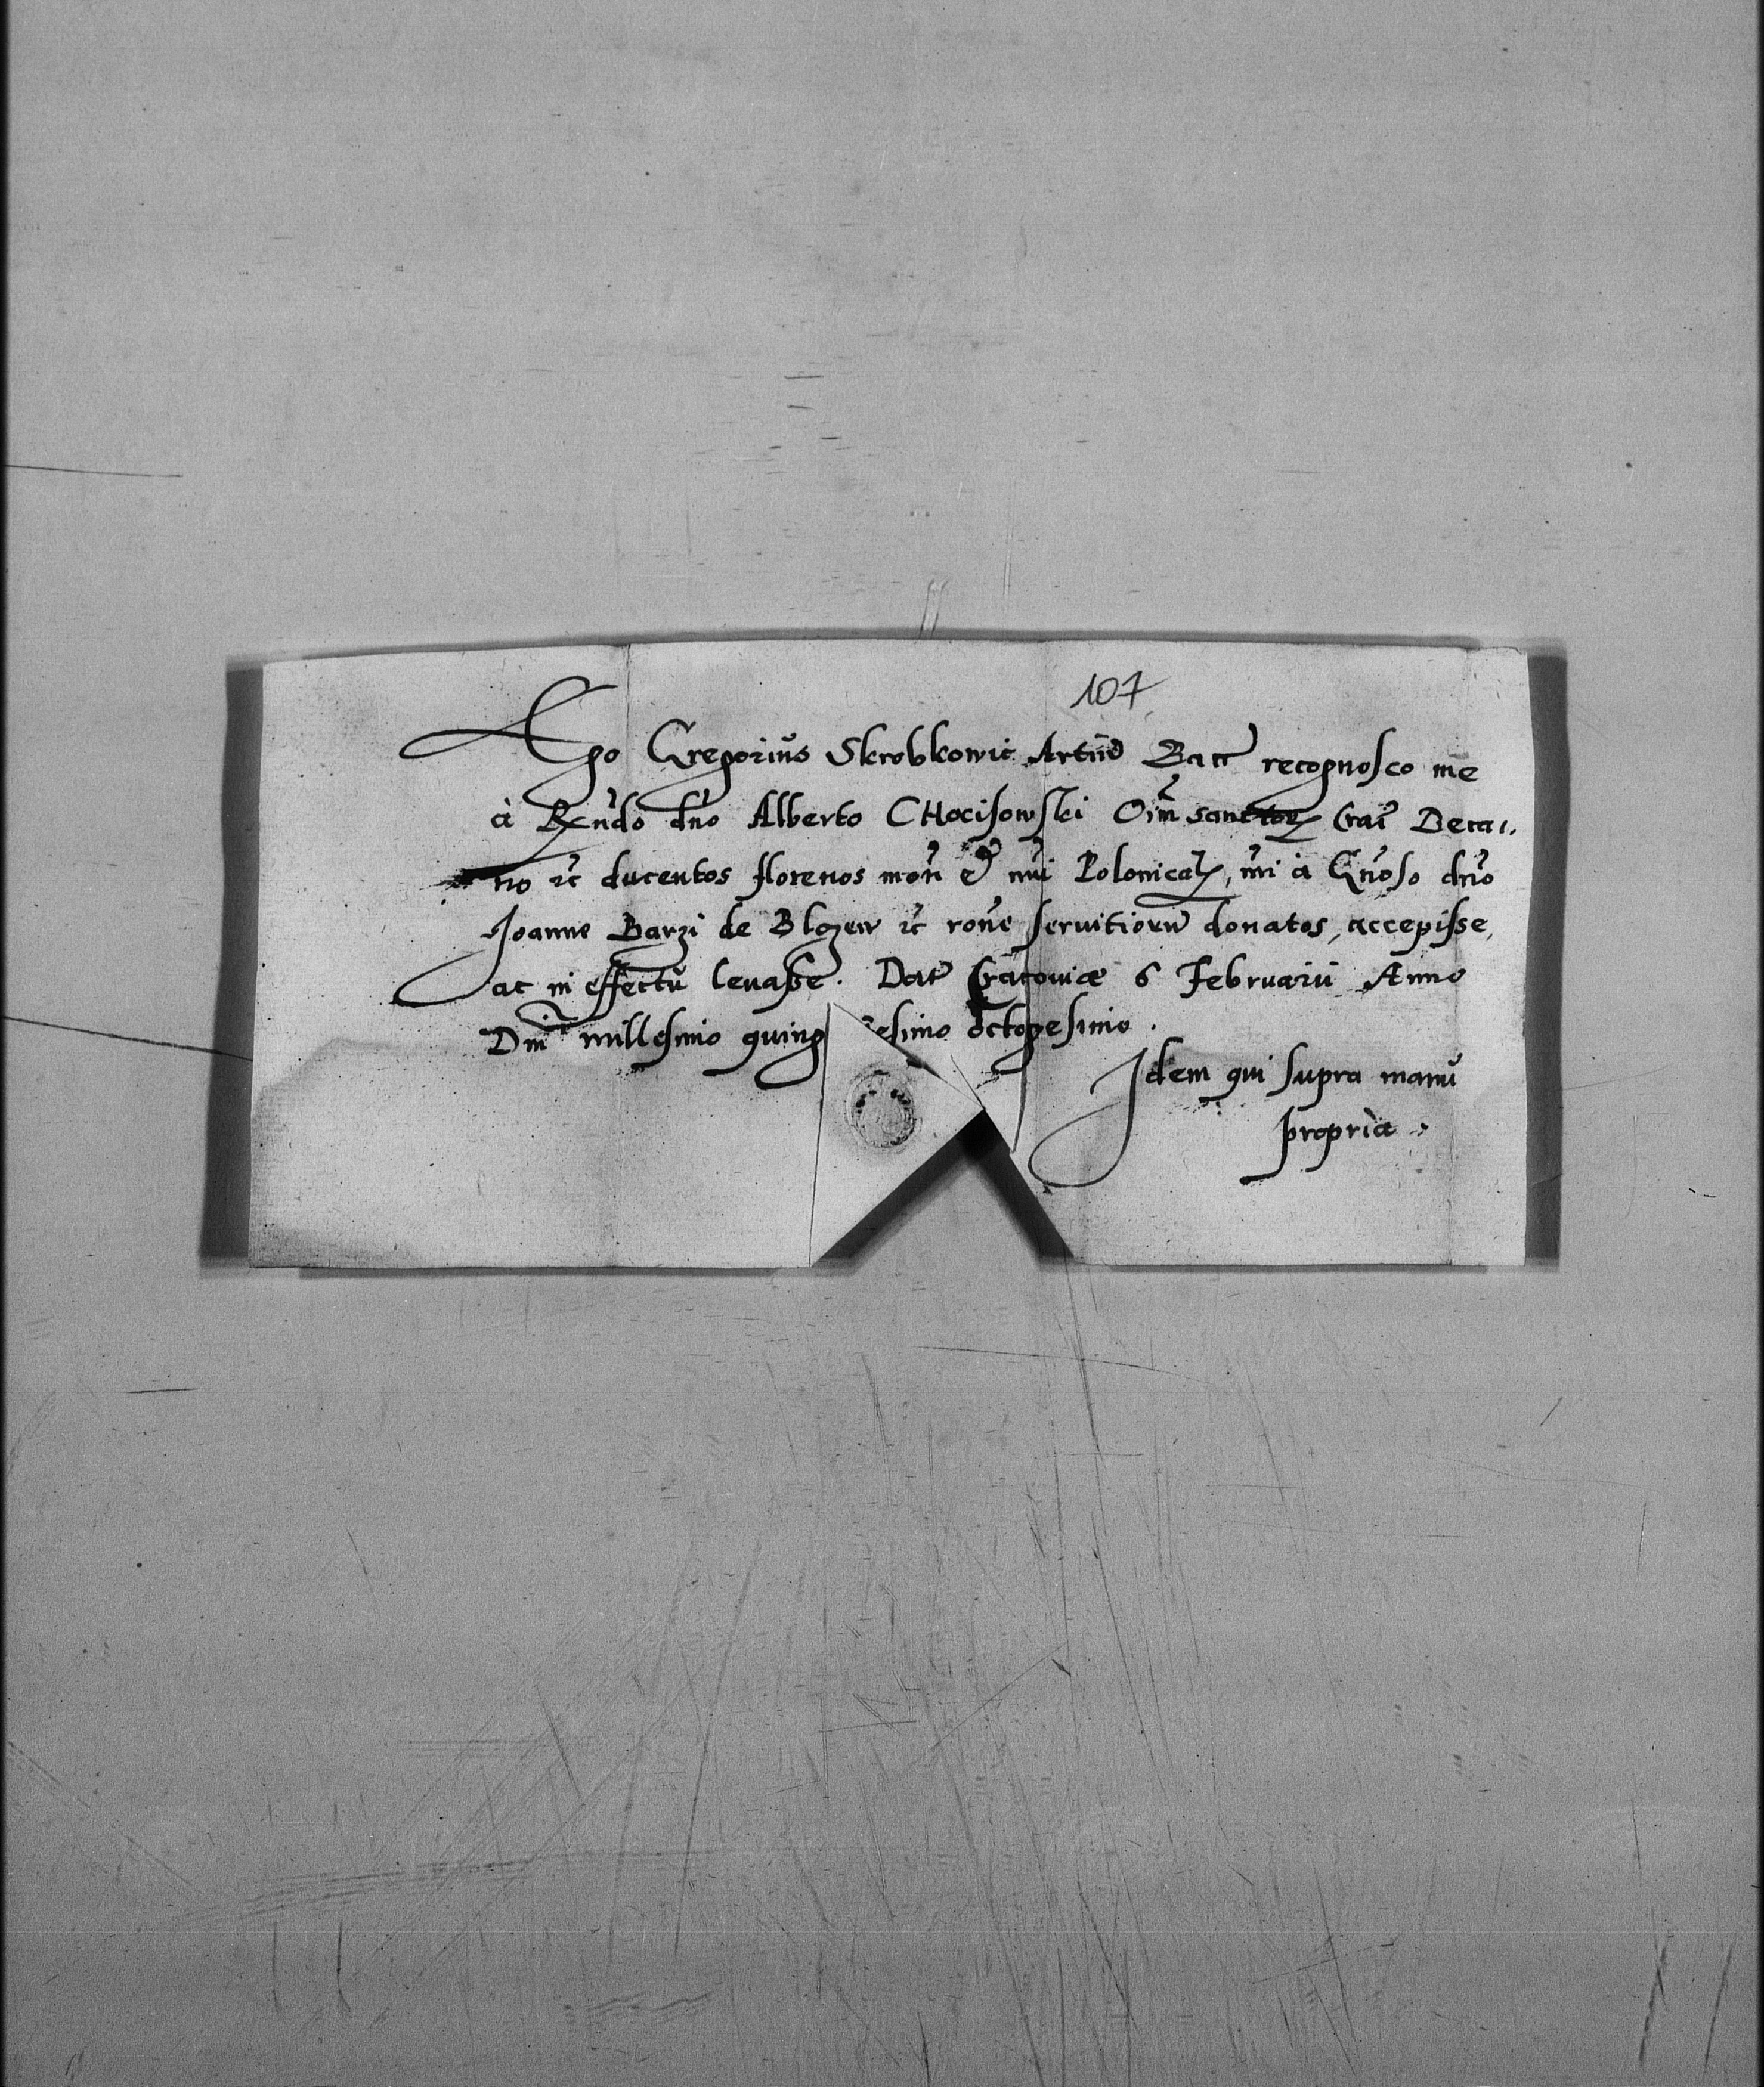 107
Ego Gregorius Skrobkowic Artiū Bacc recognosco me
à Rñdo dño Alberto CHocisowski Oīm sanctor Crac̄ Deca„
no ꝛc ducentos florenos mon̄ et nūi Polonical, m̄i à Gn̄oso dn̄o
Joanne Barzi de Blozew ꝛc rōne seruitiorū donatos, accepisse,
ac in effectū leuasse. Dat Cracouiæ 6 Februarii Anno
Dn̄i millesimo quing esimo octogesimo.
Idem qui supra manū
propria